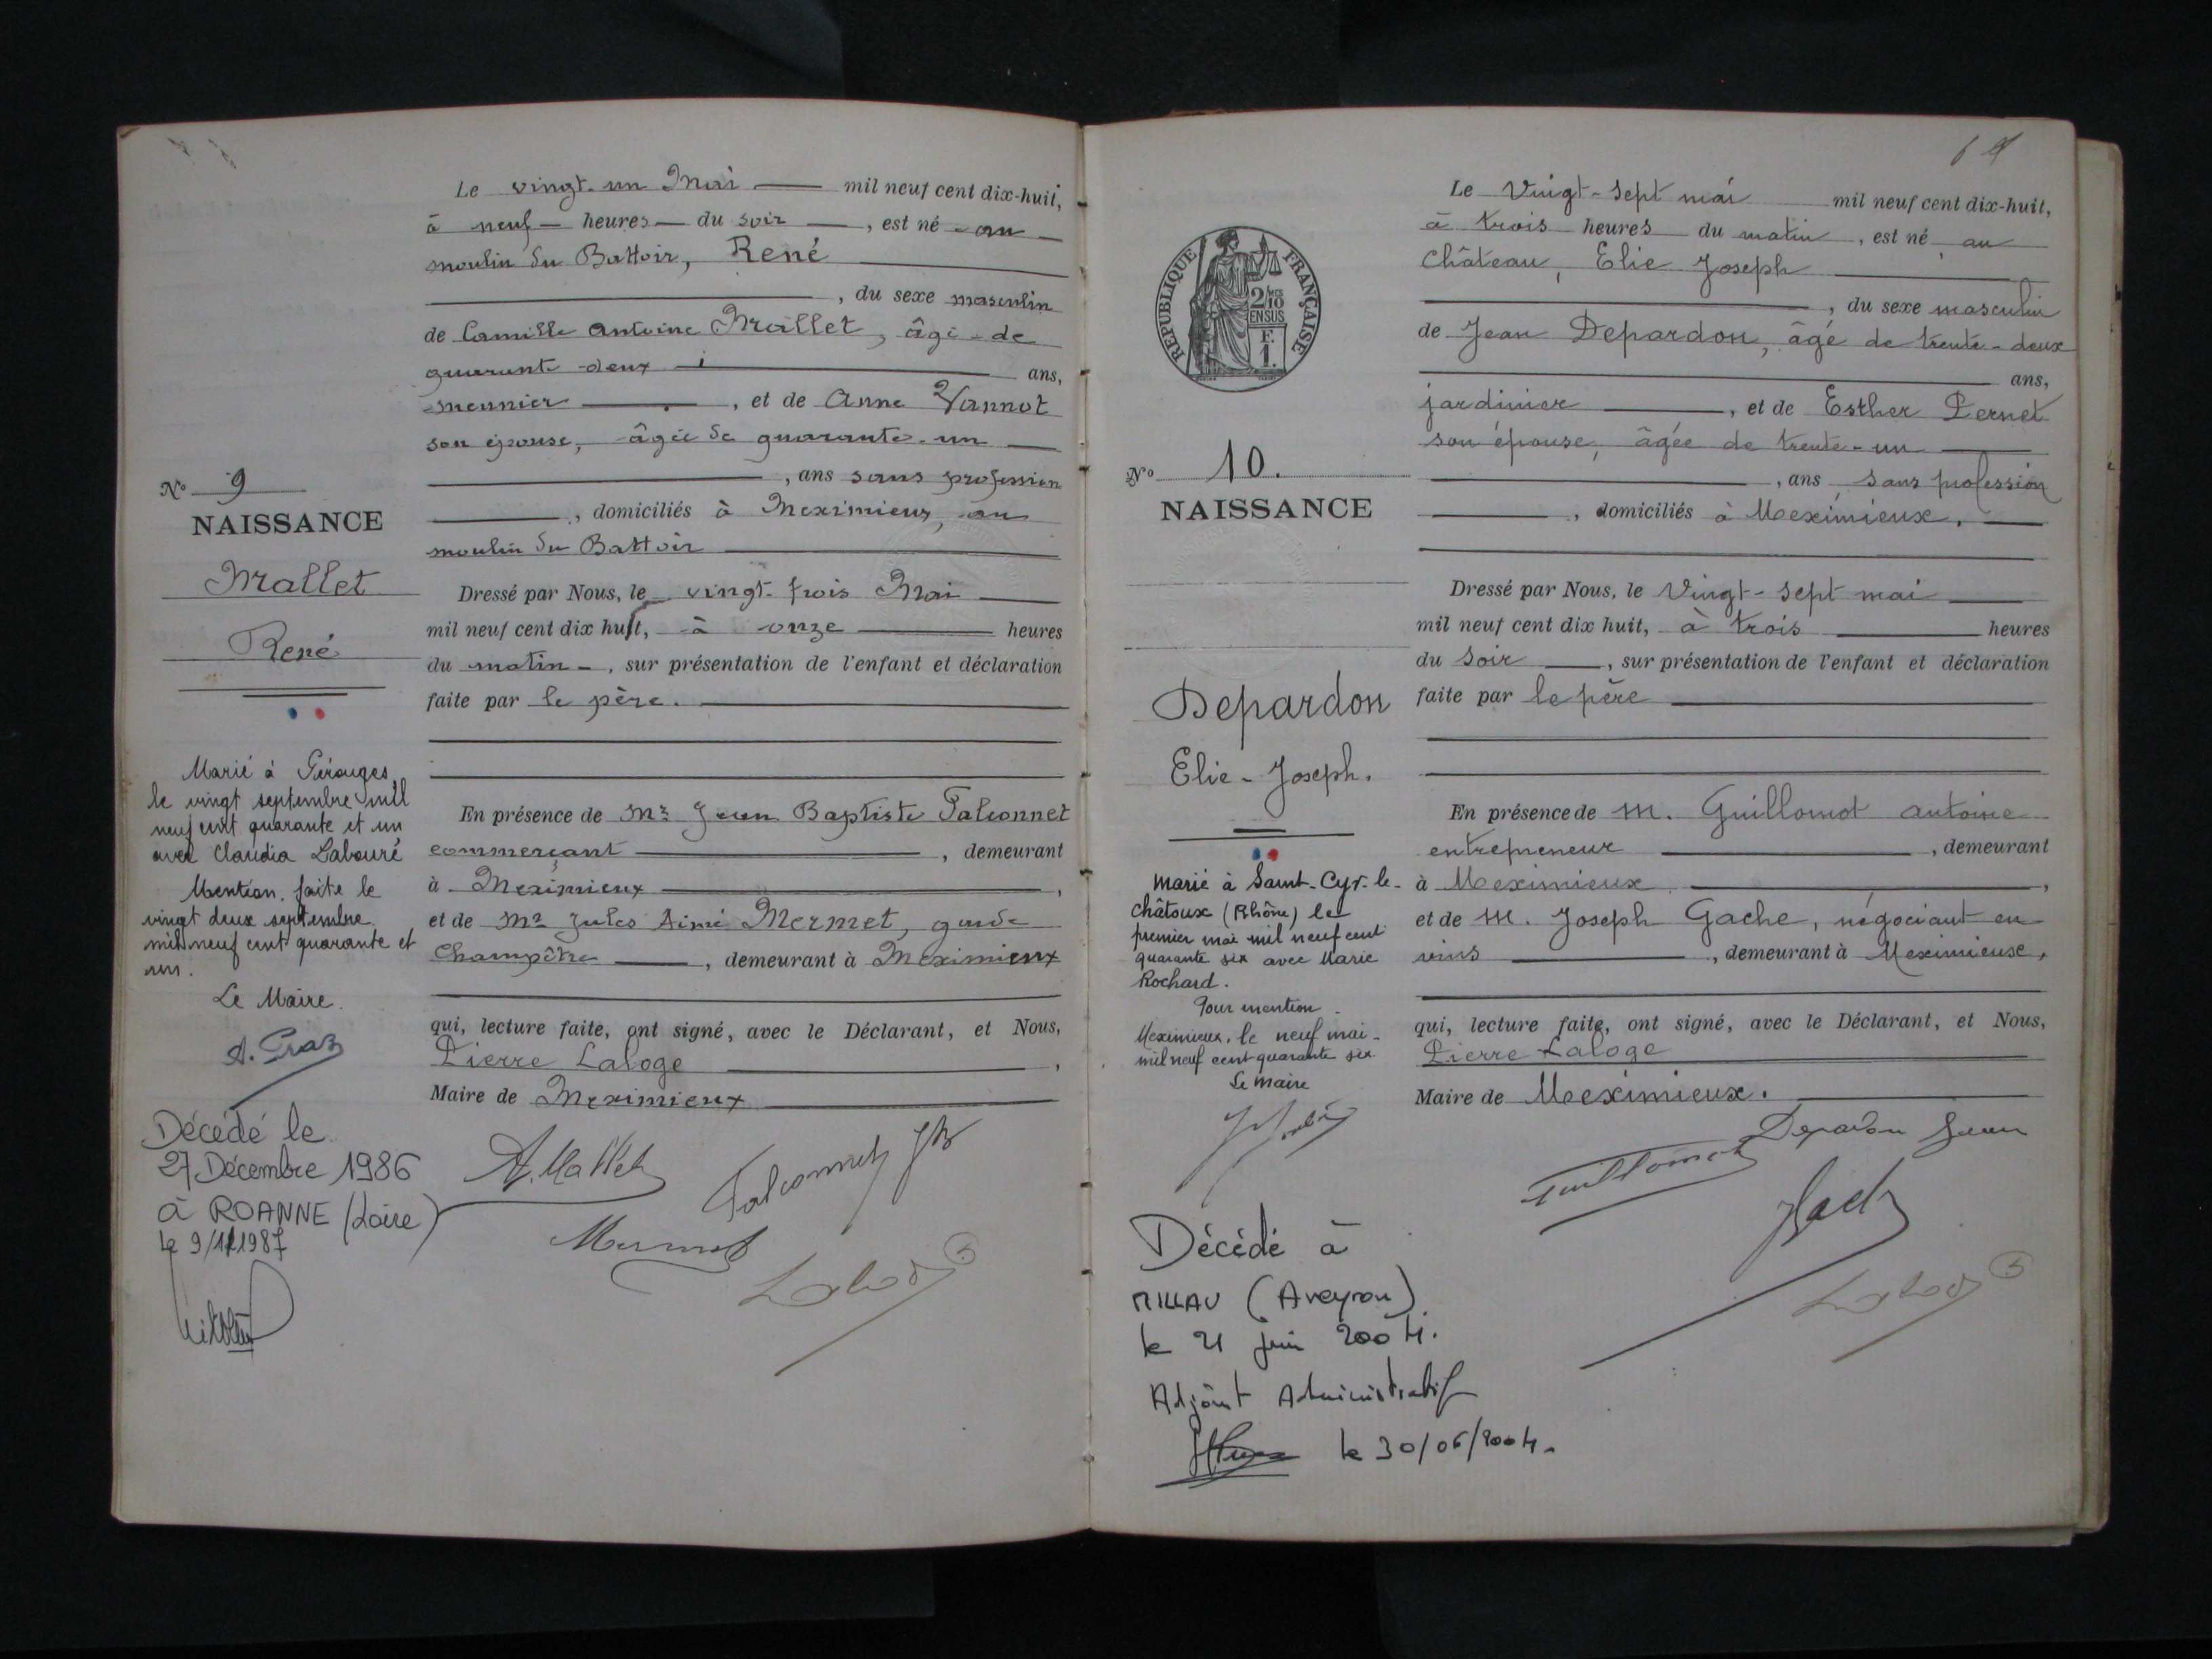 Le vingt-un Mai mil neuf cent dix-huit,
à neuf heures du soir, est né au
moulin du Battoir, René
, du sexe masculin
de Camille Antoine Mallet, âgé de
quarante-deux ans,
meunier, et de Anne Vannot
son épouse, âgée de quarante-un
, ans sans profession
, domiciliés à Meximieux, au
moulin du Battoir
Dressé par Nous, le vingt-trois Mai
mil neuf cent dix huit, à onze heures
du matin, sur présentation de l'enfant et déclaration
faite par le père.
En présence de Mr Jean Baptiste Falconnet
commerçant, demeurant
à Meximieux,
et de Mr Jules Aimé Mermet, garde
Champêtre, demeurant à Meximieux
qui, lecture faite, ont signé, avec le Déclarant, et Nous,
Pierre Laloge,
Maire de Meximieux
A. Mallet
Falconnet JB
Mermet
Laloge
No 9
NAISSANCE
Mallet
René
Marié à Pérouges,
le vingt septembre mil
neuf cent quarante et un
avec Claudia Labouré
Mention faite le
vingt deux septembre
mil neuf cent quarante et
un.
Le Maire.
Décédé le
27 Décembre 1986
à ROANNE (Loire)
le 9/1/1987
REPUBLIQUE FRANÇAISE
2/10
EN SUS
No 10.
NAISSANCE
Depardon
Elie-Joseph.
marié à Saint-Cyr-le-
Châtoux (Rhône) le
premier mai mil neuf cent
quarante six avec Marie
Rochard.
Pour mention
Meximieux, le neuf mai
mil neuf cent quarante six
Le Maire
Décédé à
MILLAU (Aveyron)
le 21 juin 2004.
Adjoint Administratif
le 30/06/2004.
Le Vingt-sept mai mil neuf cent dix-huit,
à trois heures du matin, est né au
Château, Elie Joseph
, du sexe masculin
de Jean Depardon, âgé de trente-deux
ans,
jardinier, et de Esther Pernet
son épouse, âgée de trente-un
, ans sans profession
, domiciliés à Meximieux,
Dressé par Nous, le Vingt-sept mai
mil neuf cent dix huit, à trois heures
du soir, sur présentation de l'enfant et déclaration
faite par le père
En présence de M. Guillomot antoine
entrepreneur, demeurant
à Meximieux,
et de M. Joseph Gache, négociant en
vins, demeurant à Meximieux,
qui, lecture faite, ont signé, avec le Déclarant, et Nous,
Pierre Laloge
Maire de Meximieux.
Depardon Jean
Guillomot
Laloge